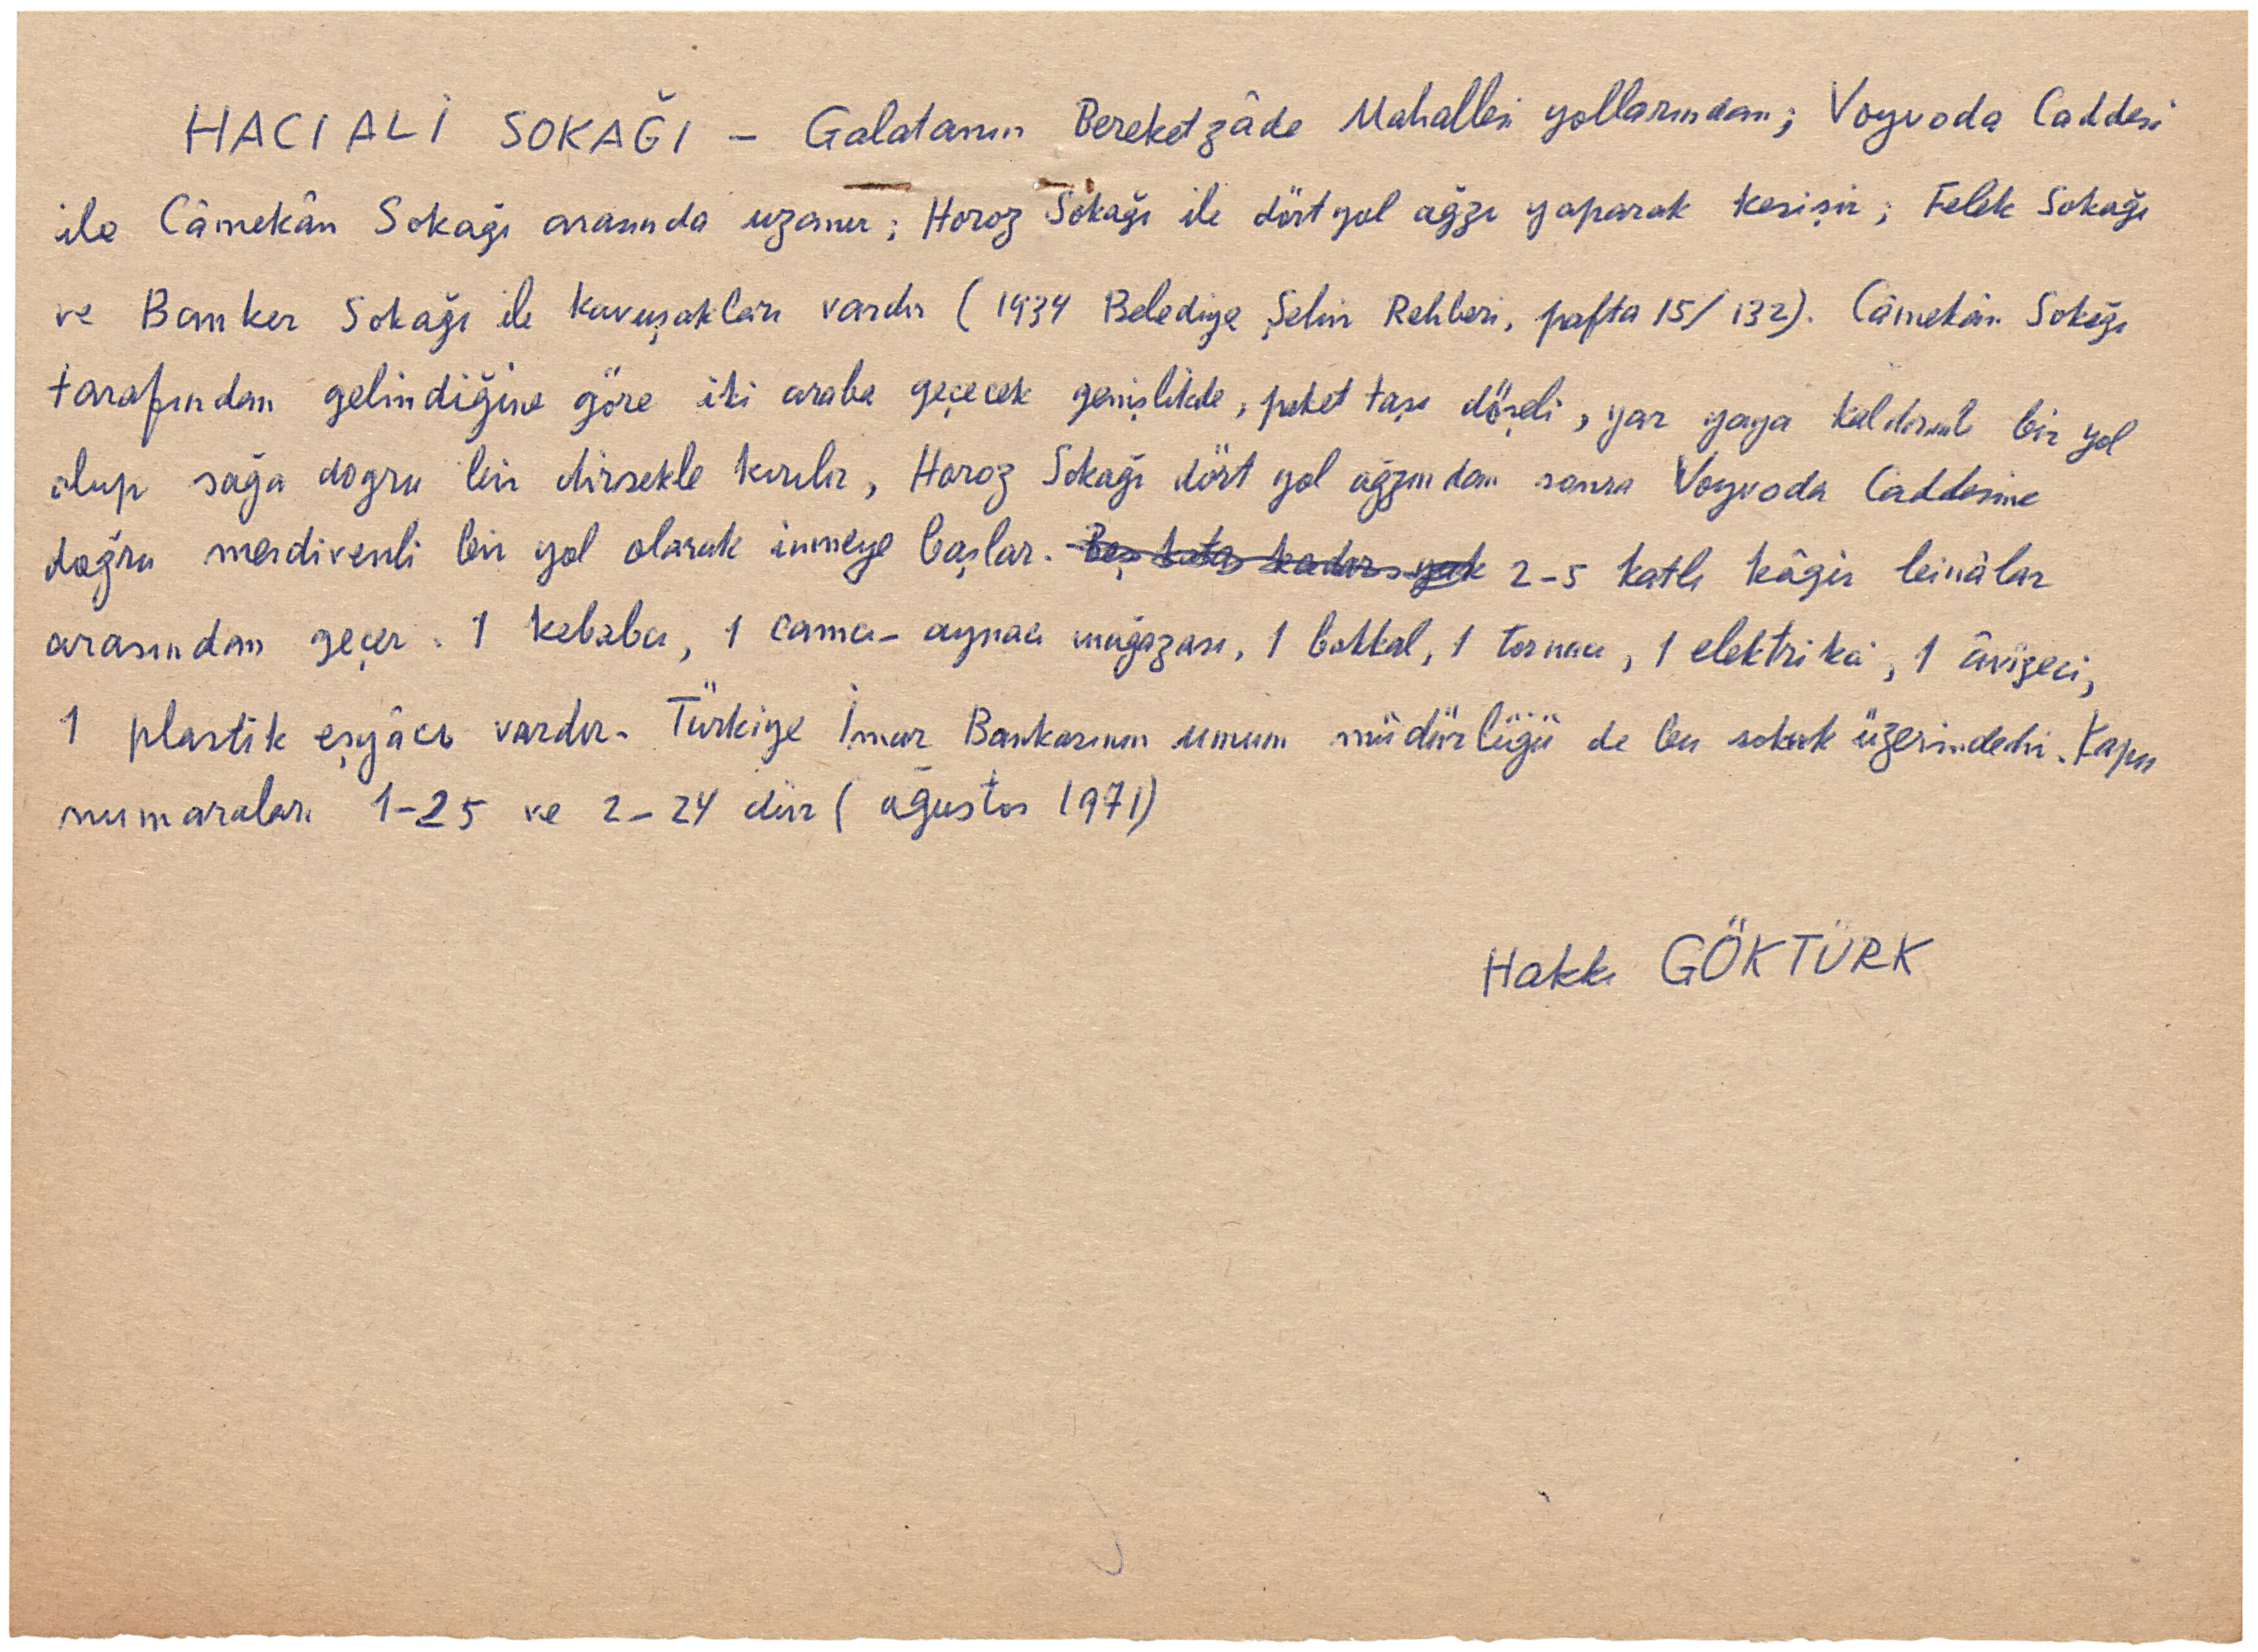 HACI ALİ SOKAĞI – Galatanın Bereketzâde Mahallesi yollarından; Voyvoda Caddesi
ile Câmekân Sokağı arasında uzanır; Horoz Sokağı ile dört yol ağzı yaparak kesişir; Felek Sokağı
ve Banker Sokağı ile kavuşakları vardır (1934 Belediye Şehir Rehberi, pafta 15/132). Câmekân Sokağı
tarafından gelindiğine göre iki araba geçecek genişlikde, paket taşı döşeli, yar yaya kaldırımlı bir yol
olup sağa dogru bir dirsekle kırılır, Horoz Sokağı dört yol ağzından sonra Voyvoda Caddesine
doğru merdivenli bir yol olarak inmeye başlar. Beş kata kadar yük 2-5 katlı kâgir binâlar
arasından geçer. 1 kebabcı, 1 camcı-aynacı mağazası, 1 bakkal, 1 tornacı, 1 elektrikci, 1 âvizeci,
1 plastik eşyâcı vardır. Türkiye İmar Bankasının umum müdürlüğü de bu sokak üzerindedir. Kapu
numaraları 1-25 ve 2-24 dür (ağustos 1971)
Hakkı GÖKTÜRK